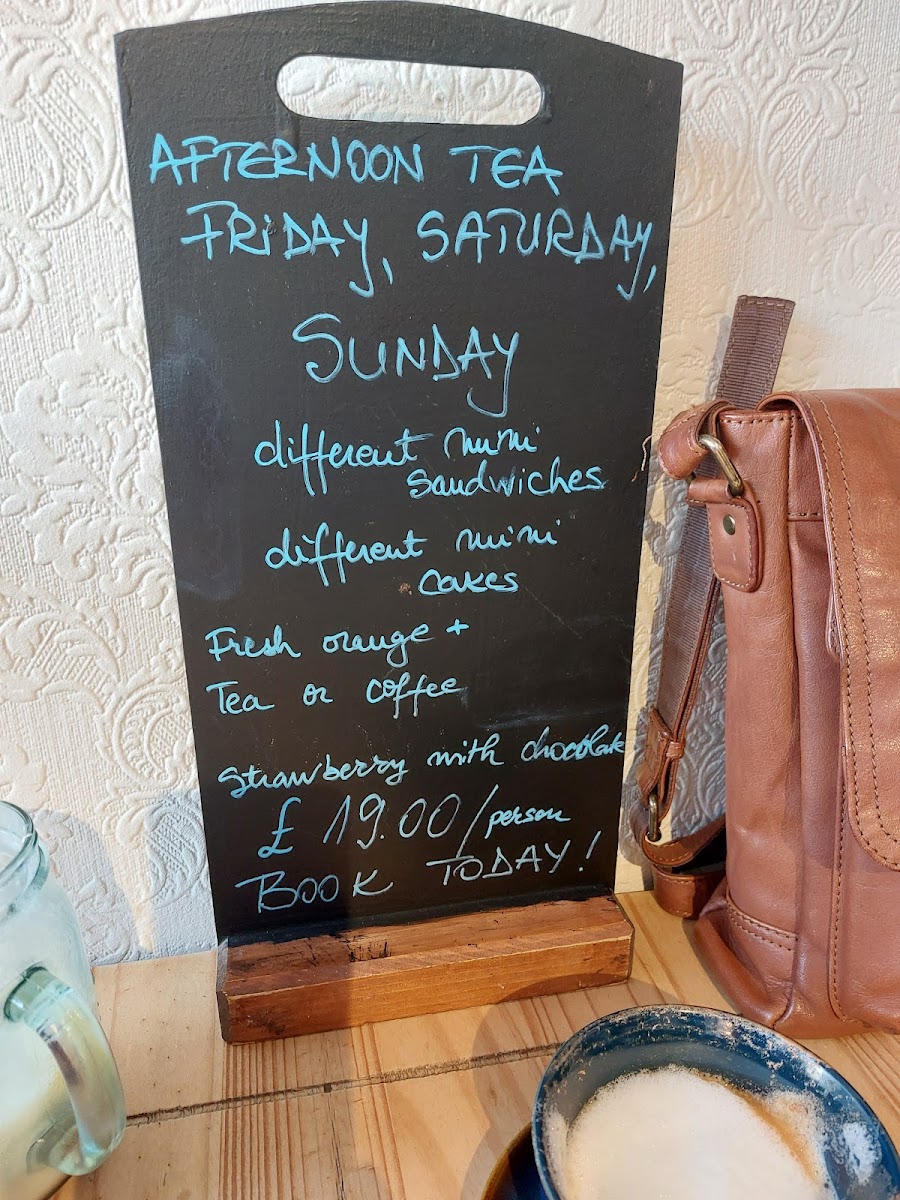 AFTERNOON TEA
FRIDAY, SATURDAY,
SUNDAY
different mini
sandwiches
different mini
cakes
Fresh orange +
Tea or coffee
strawberry with chocolate
£ 19.00/person
BOOK TODAY!